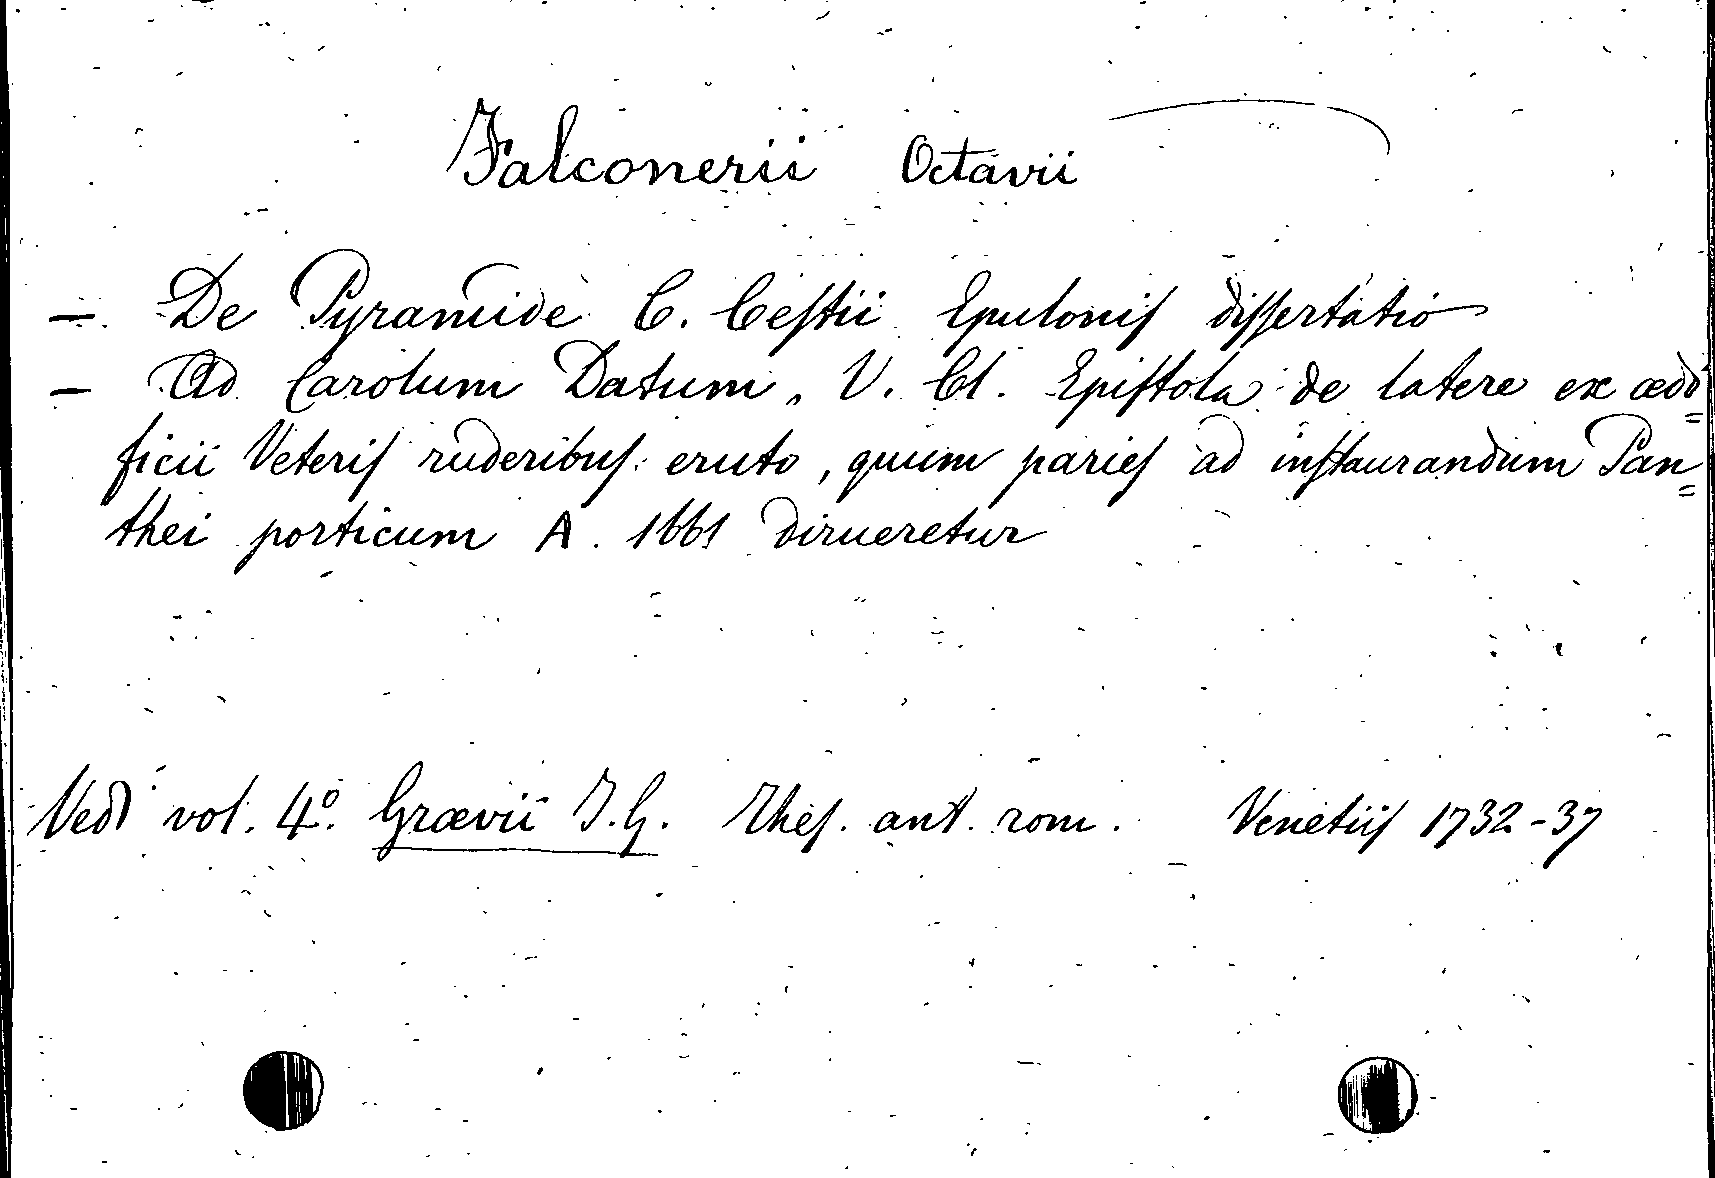 Falconerii Octavii
— De Pyramide C. Cestii Epulonis dissertatio
— Ad Carolum Datum, V. Cl. Epistola de latere ex ædi=
ficii Veteris ruderibus eruto, quum paries ad instaurandum Pan=
thei porticum A. 1661 dirueretur
Vedi vol. 4º. Grævii J. G. Thes. ant. rom. Venetiis 1732-37